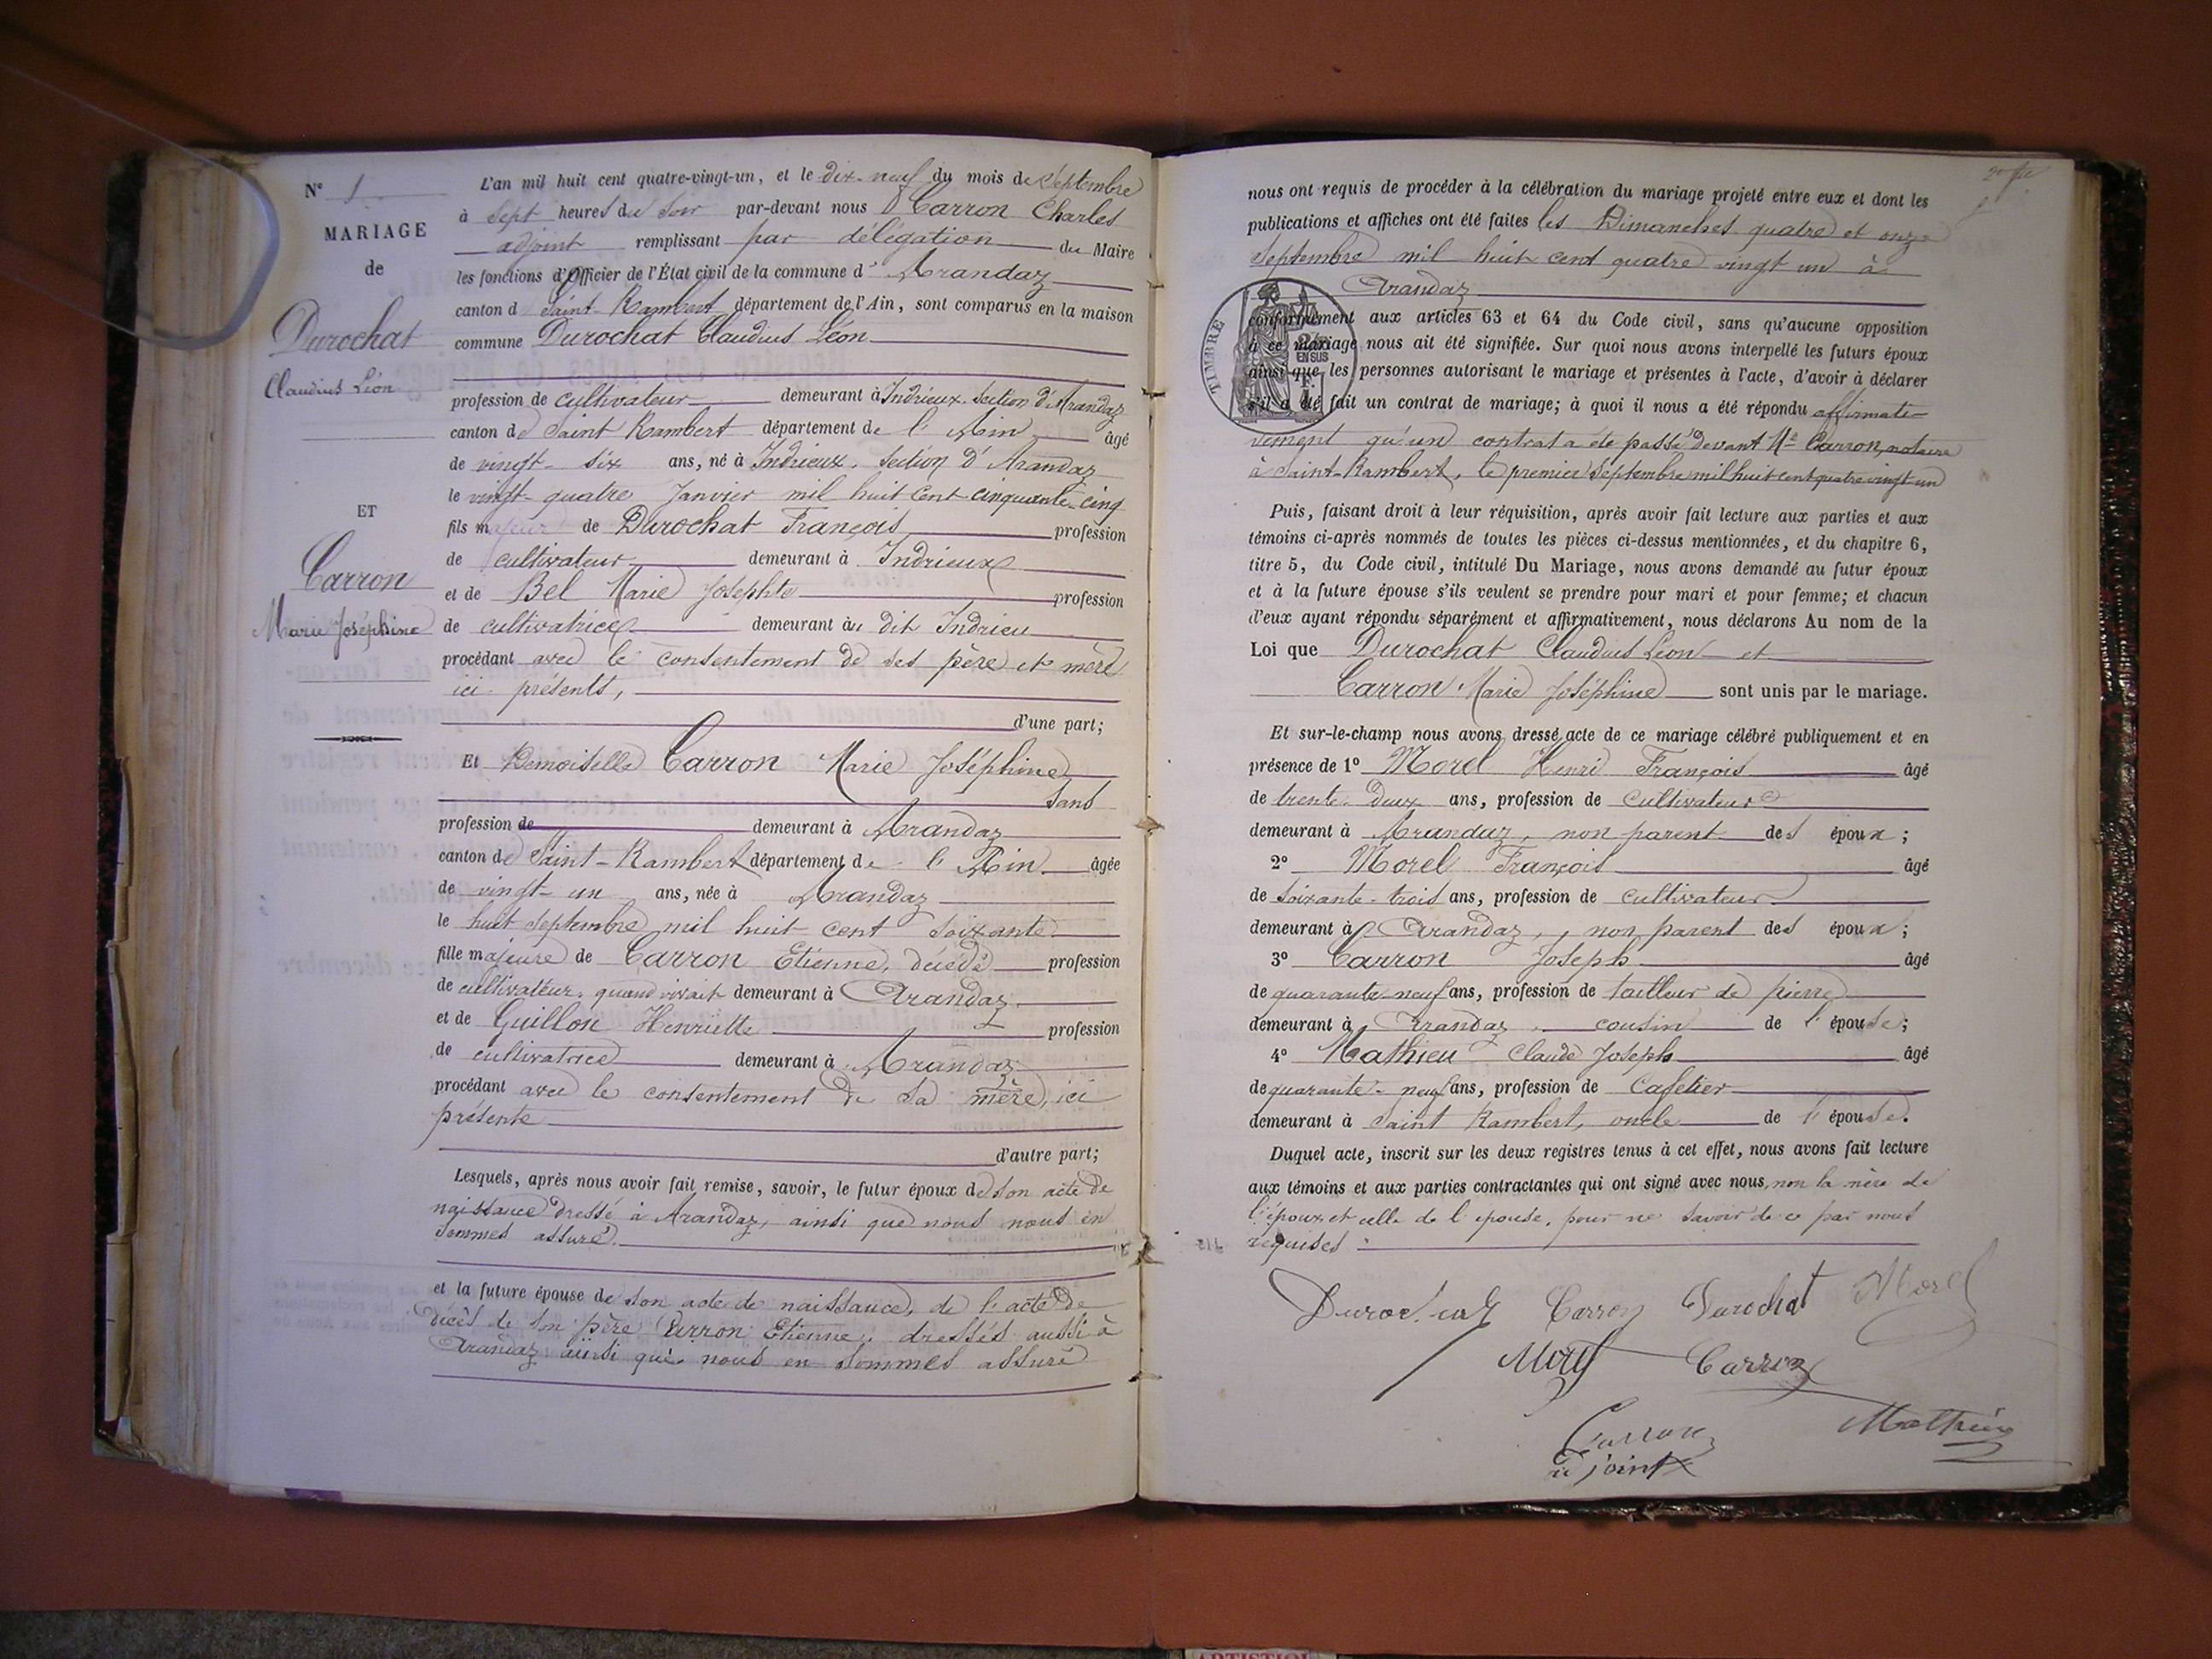 N° 1
MARIAGE
de
Durochat
Claudius Léon
ET
Carron
Marie Joséphine
L'an mil huit cent quatre-vingt-un, et le dix-neuf du mois de Septembre
à sept heures du soir par-devant nous Carron Charles
adjoint remplissant par délégation du Maire
les fonctions d'Officier de l'État civil de la commune d' Arandaz
canton d Saint-Rambert département de l'Ain, sont comparus en la maison
commune Durochat Claudius Léon
profession de cultivateur demeurant à Indrieux, Section d'Arandaz
canton de Saint Rambert département de l'Ain âgé
de vingt-six ans, né à Indrieux, Section d'Arandaz
le vingt-quatre Janvier mil huit cent cinquante-cinq
fils majeur de Durochat François profession
de cultivateur demeurant à Indrieux
et de Bel Marie Josephte profession
de cultivatrice demeurant au dit Indrieu
procédant avec le consentement de ses père et mère
ici présents,
d'une part;
Et Demoiselle Carron Marie Joséphine
sans
profession de demeurant à Arandaz
canton de Saint-Rambert département de l'Ain âgée
de vingt-un ans, née à Arandaz
le huit Septembre mil huit cent soixante
fille majeure de Carron Etienne, décédé profession
de cultivateur, quand vivait demeurant à Arandaz
et de Guillon Henriette profession
de cultivatrice demeurant à Arandaz
procédant avec le consentement de sa mère, ici
présente
d'autre part;
Lesquels, après nous avoir fait remise, savoir, le futur époux de son acte de
naissance dressé à Arandaz, ainsi que nous nous en
sommes assuré.
et la future épouse de son acte de naissance, de l'acte de
décès de son père Carron Etienne, dressés aussi à
Arandaz ainsi que nous en sommes assuré
nous ont requis de procéder à la célébration du mariage projeté entre eux et dont les
publications et affiches ont été faites les Dimanches quatre et onze
Septembre mil huit cent quatre vingt un à
Arandaz
TIMBRE
EN SUS
conformément aux articles 63 et 64 du Code civil, sans qu'aucune opposition
à ce mariage nous ait été signifiée. Sur quoi nous avons interpellé les futurs époux
ainsi que les personnes autorisant le mariage et présentes à l'acte, d'avoir à déclarer
s'il a été fait un contrat de mariage; à quoi il nous a été répondu affirmati-
vement qu'un contrat a été passé devant Me Carron, notaire
à Saint-Rambert, le premier Septembre mil huit cent quatre vingt un
Puis, faisant droit à leur réquisition, après avoir fait lecture aux parties et aux
témoins ci-après nommés de toutes les pièces ci-dessus mentionnées, et du chapitre 6,
titre 5, du Code civil, intitulé Du Mariage, nous avons demandé au futur époux
et à la future épouse s'ils veulent se prendre pour mari et pour femme; et chacun
d'eux ayant répondu séparément et affirmativement, nous déclarons Au nom de la
Loi que Durochat Claudius Léon et
Carron Marie Joséphine sont unis par le mariage.
Et sur-le-champ nous avons dressé acte de ce mariage célébré publiquement et en
présence de 1° Morel Henri François âgé
de trente-deux ans, profession de cultivateur
demeurant à Arandaz, non parent des époux;
2° Morel François âgé
de soixante-trois ans, profession de cultivateur
demeurant à Arandaz, non parent des époux;
3° Carron Joseph âgé
de quarante-neuf ans, profession de tailleur de pierre
demeurant à Arandaz, cousin de l'épouse;
4° Mathieu Claude Joseph âgé
de quarante-neuf ans, profession de Cafetier
demeurant à Saint Rambert, oncle de l'épouse.
Duquel acte, inscrit sur les deux registres tenus à cet effet, nous avons fait lecture
aux témoins et aux parties contractantes qui ont signé avec nous, non la mère de
l'époux et celle de l'épouse, pour ne savoir de ce par nous
requises
Durochat Carron Durochat Morel
Morel Carron
Carron Mathieu
adjoint